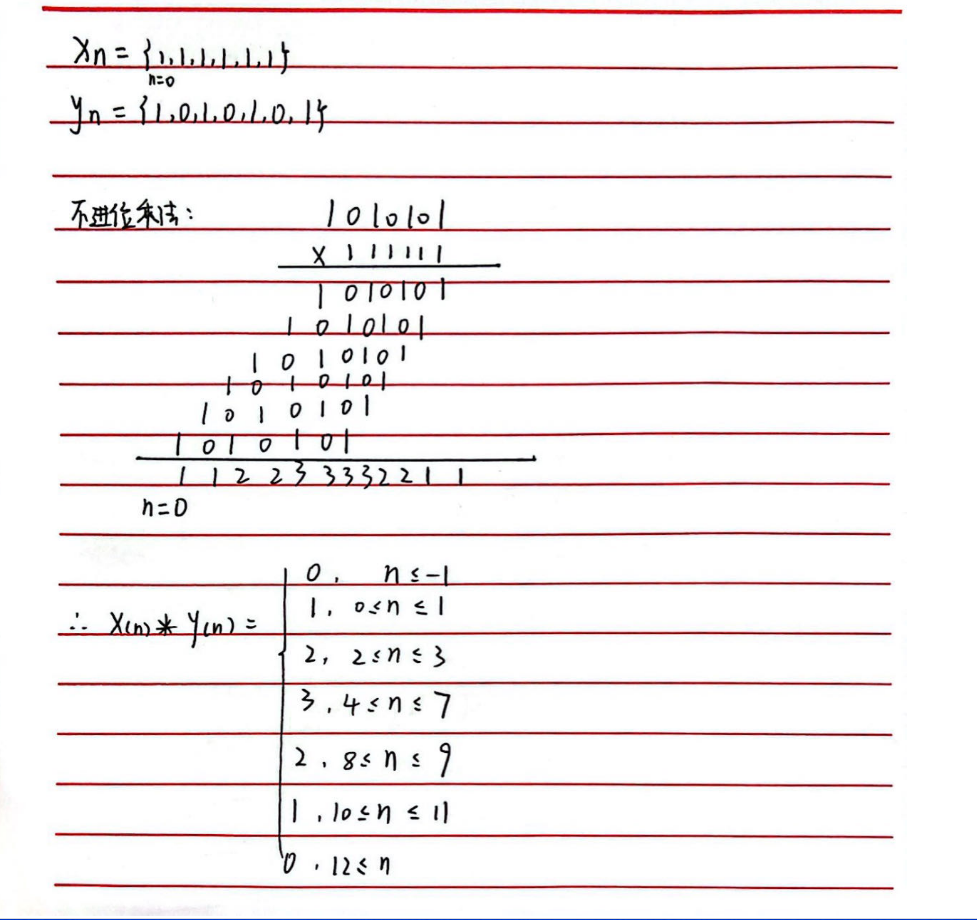 Xn = {1,1,1,1,1,1}
n=0
yn = {1,0,1,0,1,0,1}
不进位乘法: 1 0 1 0 1 0 1
x 1 1 1 1 1 1
1 0 1 0 1 0 1
1 0 1 0 1 0 1
1 0 1 0 1 0 1
1 0 1 0 1 0 1
1 0 1 0 1 0 1
1 0 1 0 1 0 1
1 1 2 2 3 3 3 3 2 2 1 1
n=0
0, n ≤ -1
1, 0 ≤ n ≤ 1
∴ X(n) * Y(n) =
2, 2 ≤ n ≤ 3
3, 4 ≤ n ≤ 7
2, 8 ≤ n ≤ 9
1, 10 ≤ n ≤ 11
0, 12 ≤ n